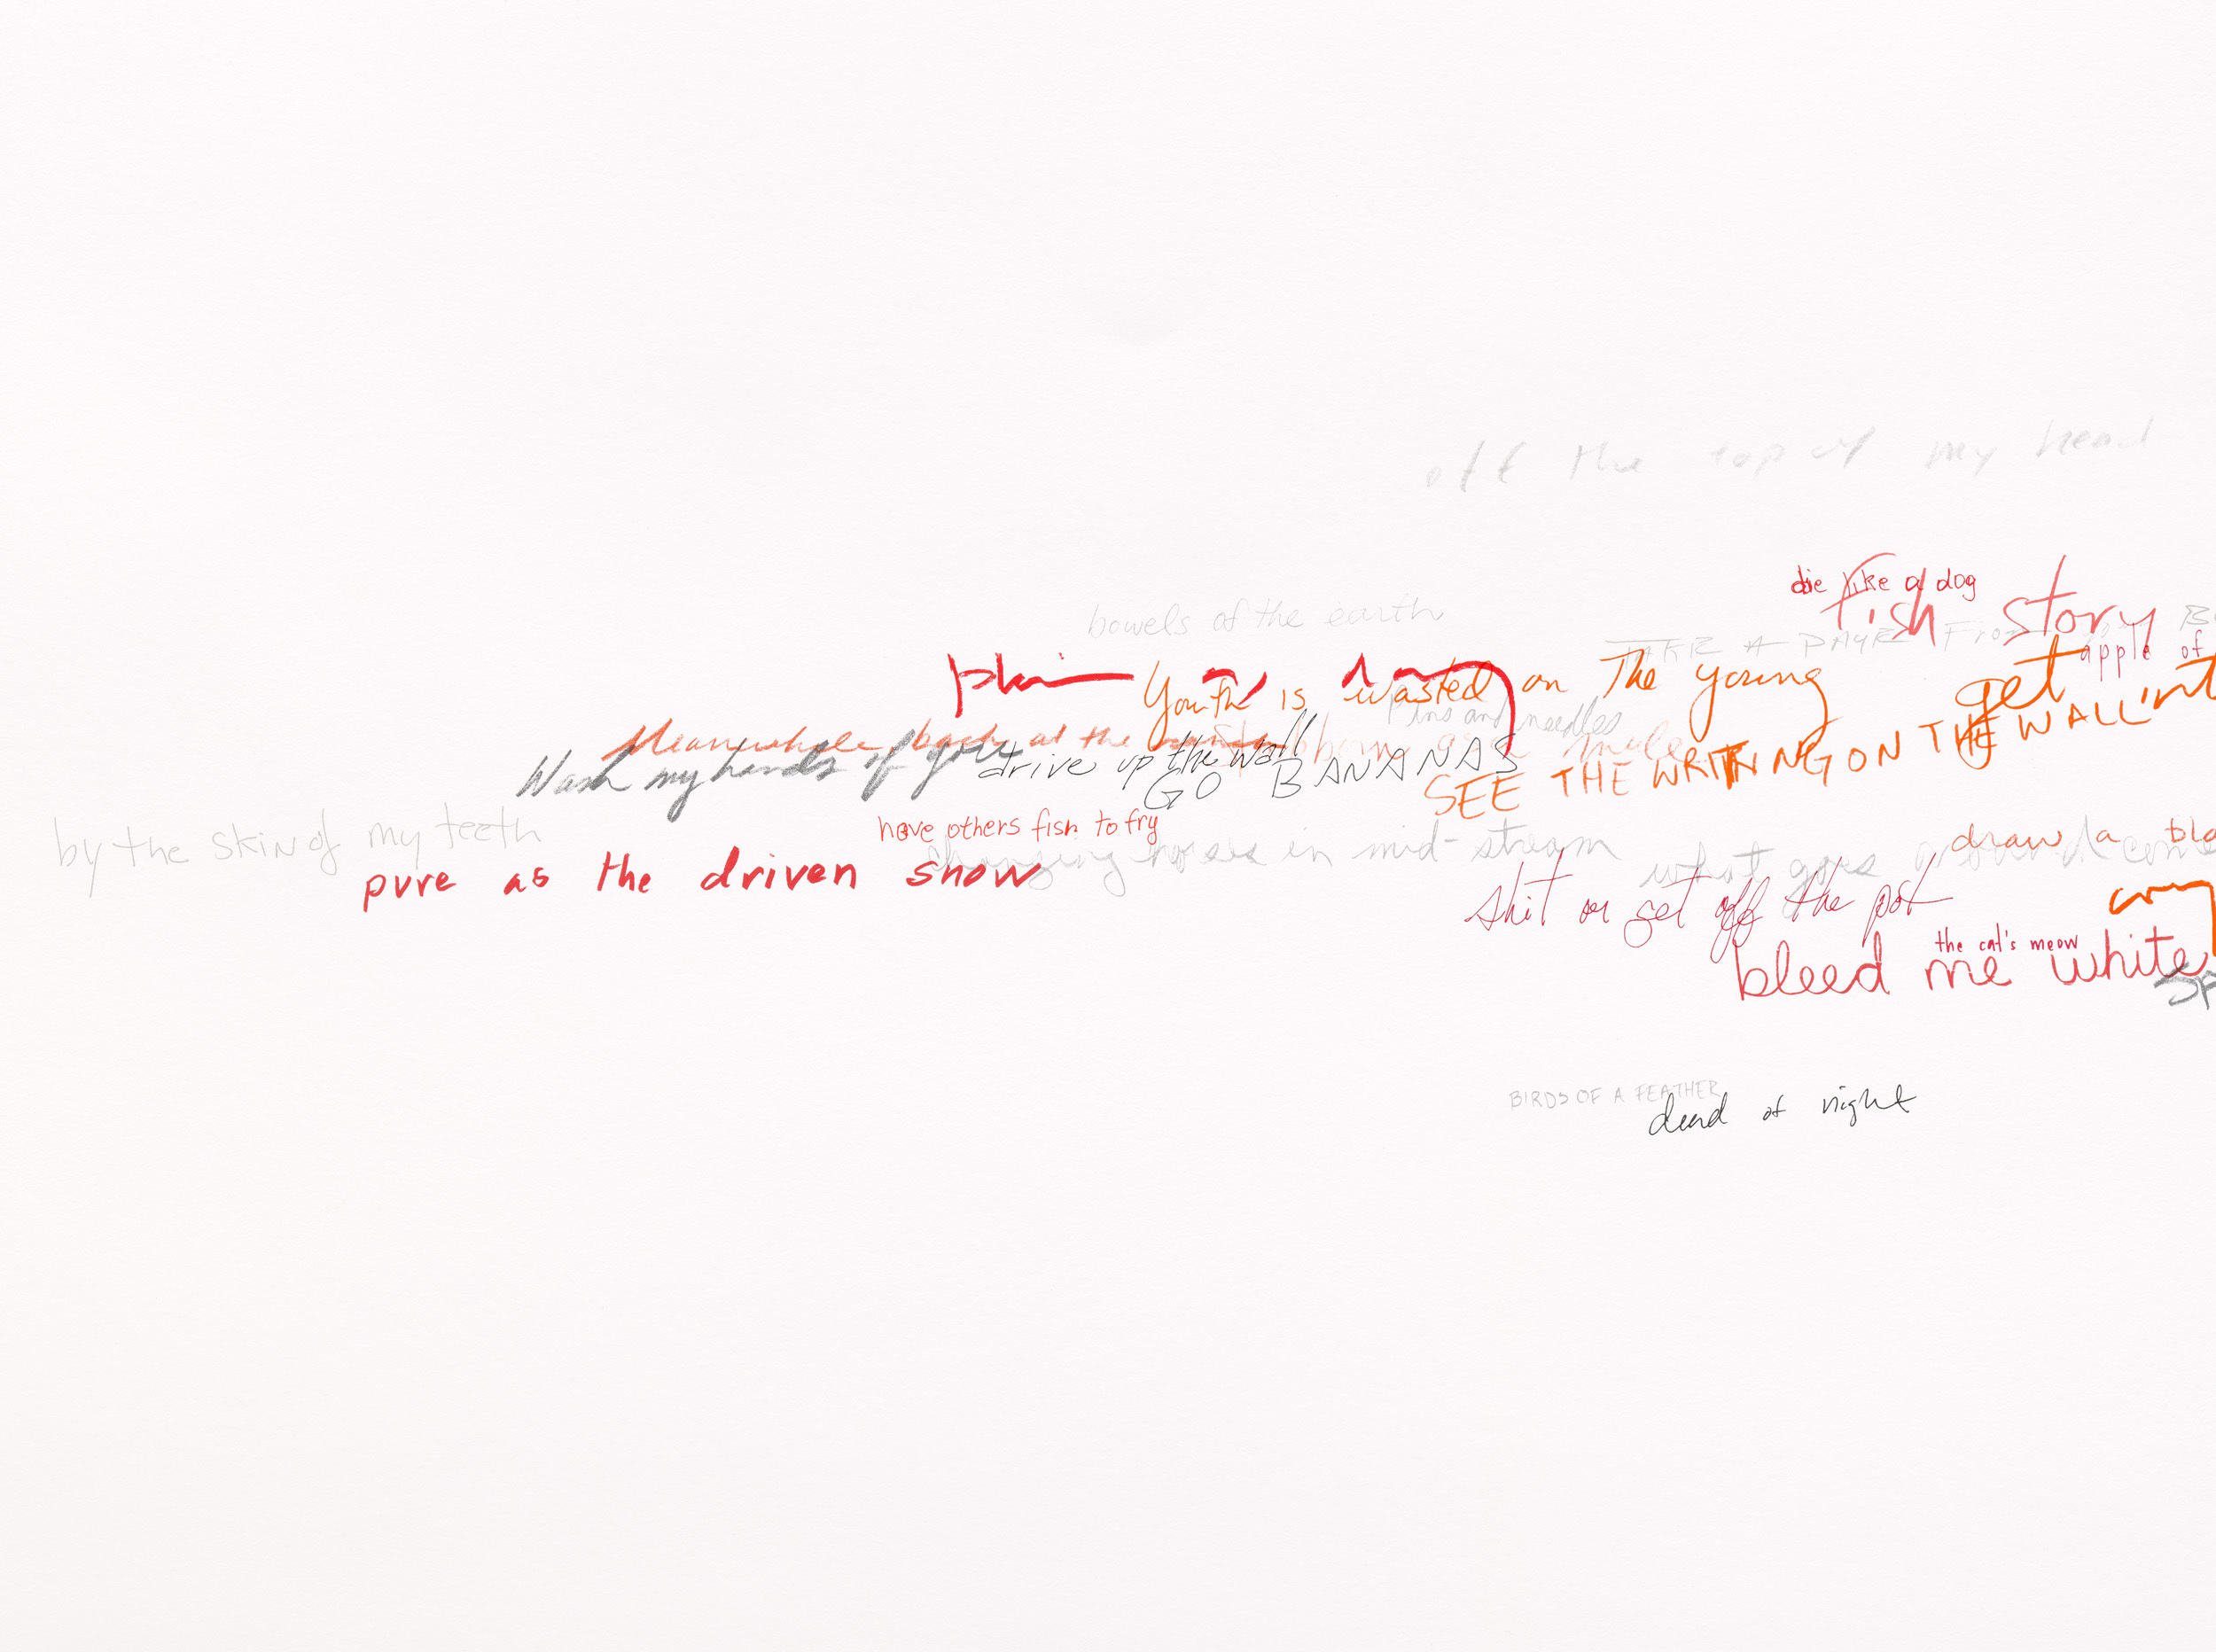 off the top of my head
die like a dog
fish story
bowels of the earth
TAKE A
apple of
Youth is wasted on The young
get
pins and needles
Meanwhile, back at the
mule
SEE THE WRITING ON THE WALL
Wash my hands of
drive up the wall
GO BANANAS
by the skin of my teeth
have others fish to fry
changing horses in mid-stream
draw a
what goes around
pure as the driven snow
shit or get off the pot
the cat's meow
bleed me white
BIRDS OF A FEATHER
dead of night